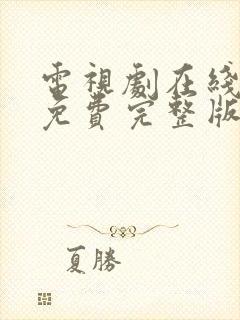 電視劇在綫
免費完整版
夏勝